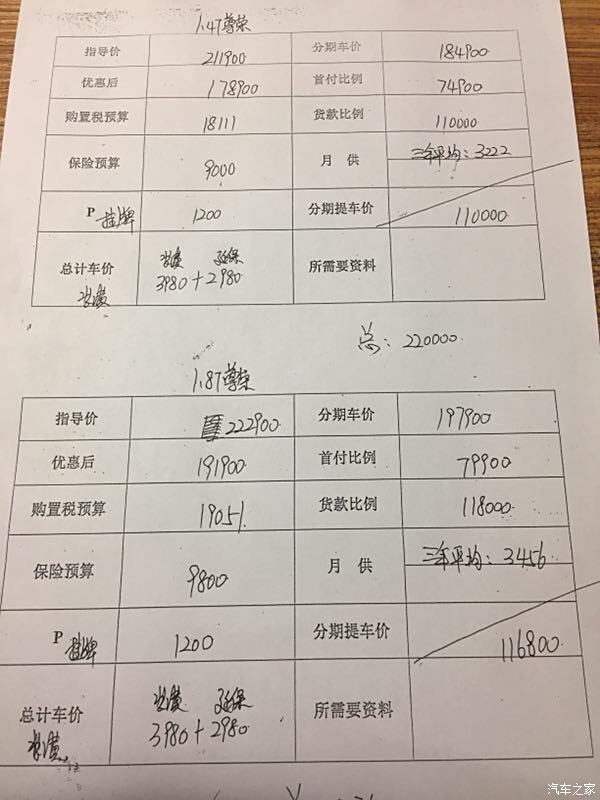 1.4T尊荣
指导价 211900 分期车价 184900
优惠后 178900 首付比例 74900
购置税预算 18111 贷款比例 110000
保险预算 9000 月 供 三年平均：3222
P 挂牌 1200 分期提车价 110000
装潢 延保
总计车价 3980+2980 所需要资料
装潢
总：220000
1.8T尊荣
指导价 222900 分期车价 197900
优惠后 191900 首付比例 79900
购置税预算 19051 贷款比例 118000
保险预算 9800 月 供 三年平均：3456
P 挂牌 1200 分期提车价 116800
装潢 延保
总计车价 3980+2980 所需要资料
装潢
汽车之家